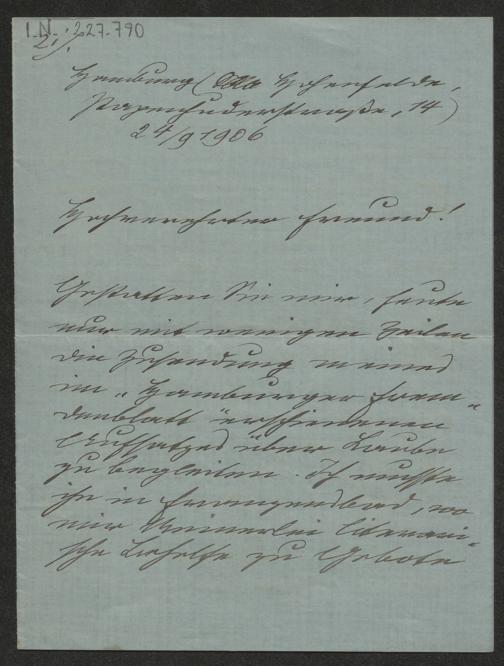 I.N. 227.790
Hamburg (Hohenfelde,
Papenhuderstraße, 14)
24/9 1906
Hochverehrter Freund!
Gestatten Sie mir, heute
nur mit wenigen Zeilen
die Zusendung meines
im „Hamburger Frem-
denblatt" erschienenen
Aufsatzes über Laube
zu begleiten. Ich mußte
ihn in Franzensbad, wo
mir keinerlei literari-
sche Behelfe zu Gebote